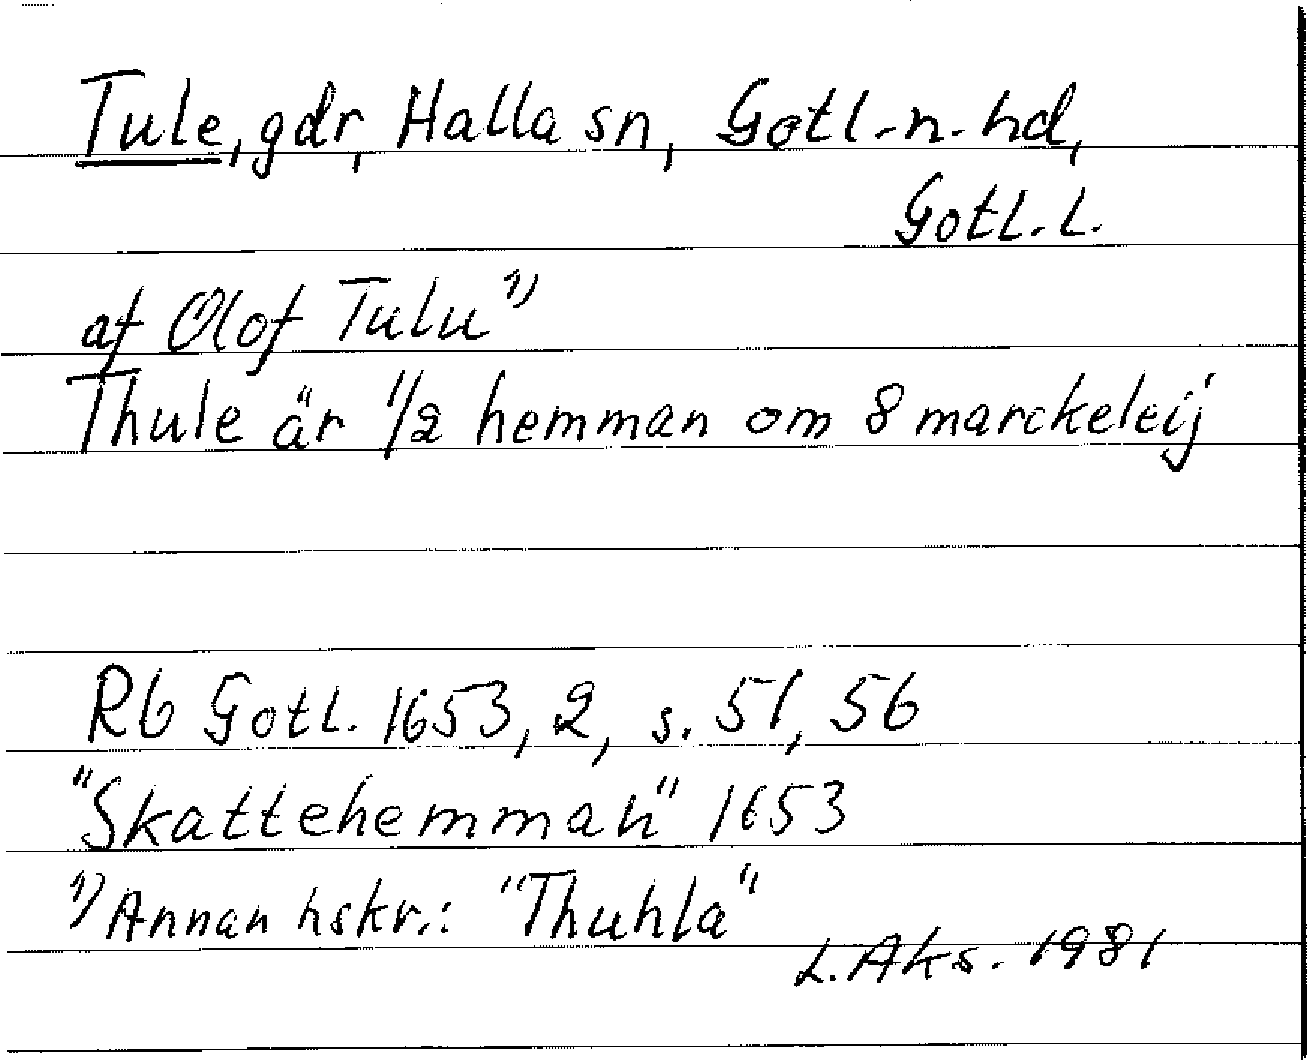 Tule, gdr, Halla sn, Gotl.n.hd,
Gotl.l.
af Olof Tulu 1)
Thule är 1/2 hemman om 8 marckeleij
Rb Gotl. 1653, 2, s. 51, 56
"Skattehemman" 1653
1) Annan hskr.: "Thuhla"
L. Aks. 1981